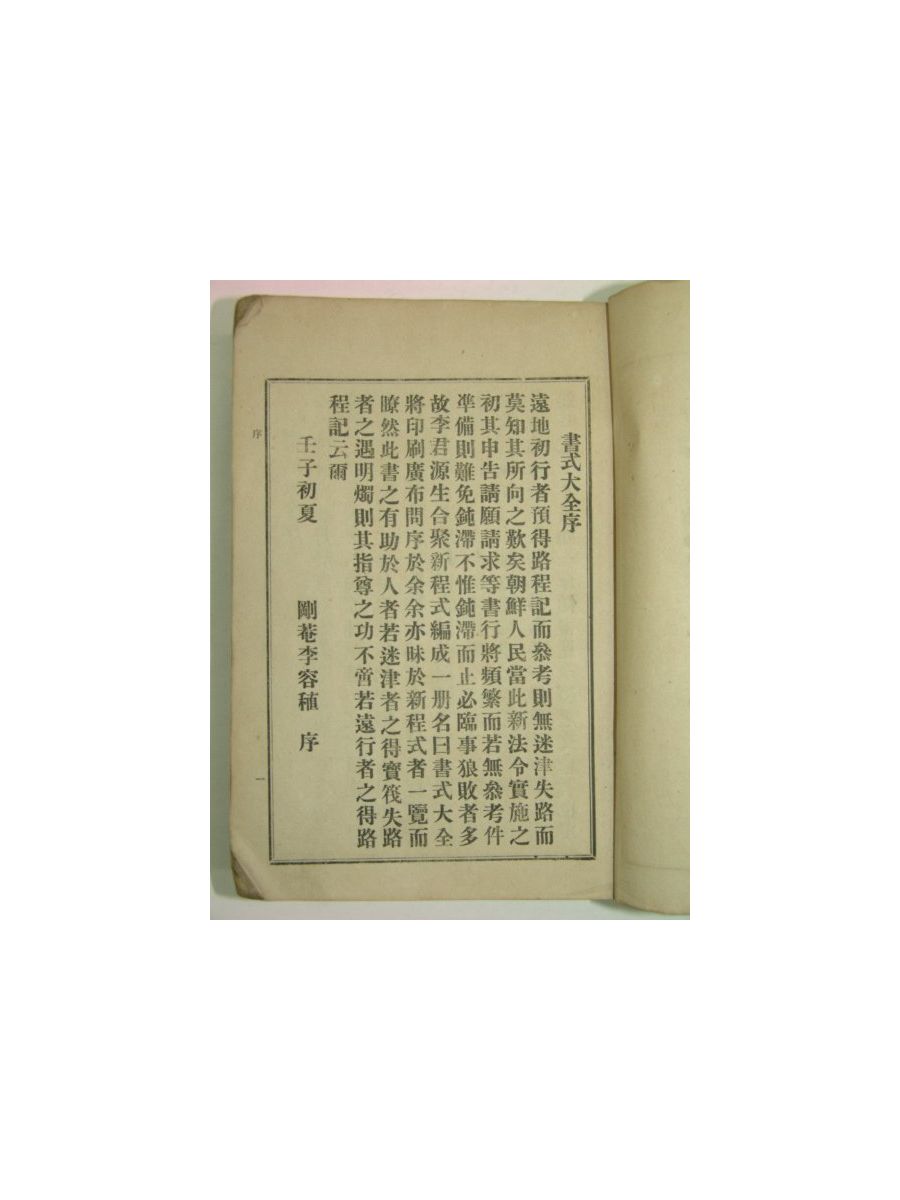 書式大全序
遠地初行者預得路程記而叅考則無迷津失路而
莫知其所向之歎矣朝鮮人民當此新法令實施之
初其申告請願請求等書行將頻繁而若無叅考件
準備則難免鈍滯不惟鈍滯而止必臨事狼敗者多
故李君源生合聚新程式編成一册名曰書式大全
將印刷廣布問序於余余亦昧於新程式者一覽而
瞭然此書之有助於人者若迷津者之得寶筏失路
者之遇明燭則其指尊之功不啻若遠行者之得路
程記云爾
壬子初夏 剛菴李容稙 序
序 一